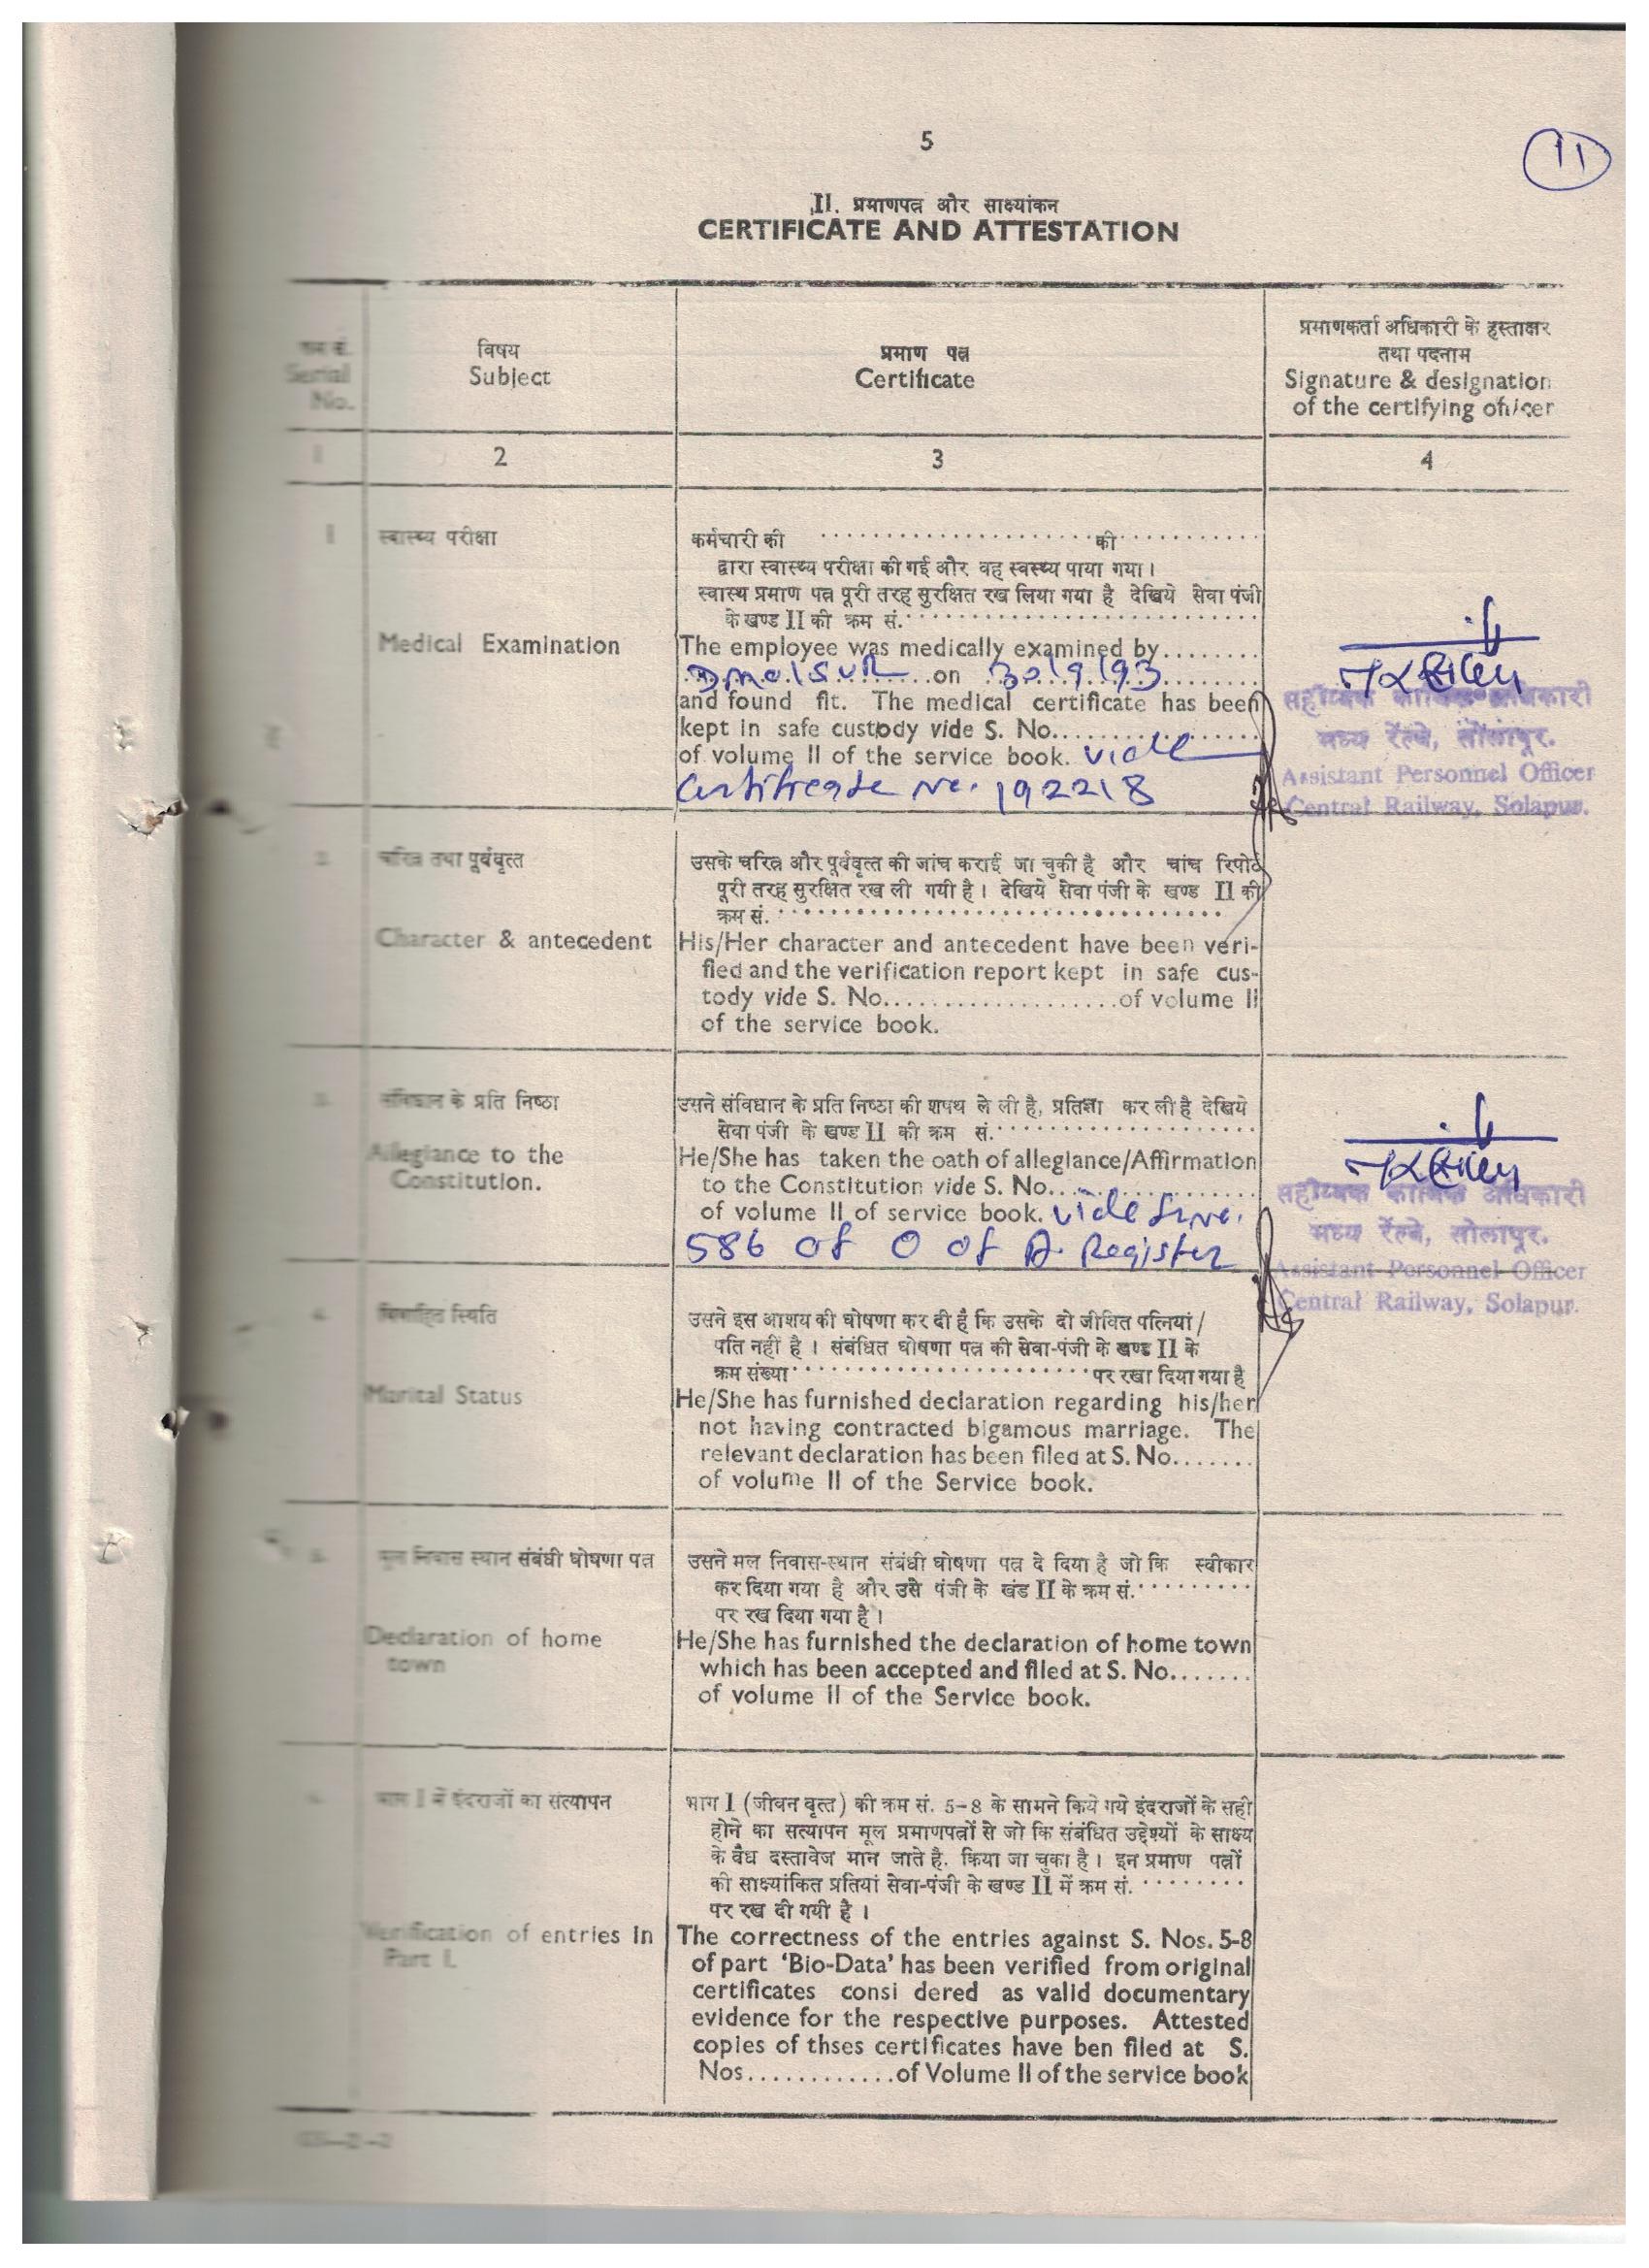 5
11
II. प्रमाणपत्र और साक्ष्यांकन
CERTIFICATE AND ATTESTATION
क्रम सं.
Serial
No.
विषय
Subject
प्रमाण पत्र
Certificate
प्रमाणकर्ता अधिकारी के हस्ताक्षर
तथा पदनाम
Signature & designation
of the certifying officer
1 2 3 4
1 स्वास्थ्य परीक्षा
कर्मचारी की ...................... की ............
द्वारा स्वास्थ्य परीक्षा की गई और वह स्वस्थ्य पाया गया।
स्वास्थ प्रमाण पत्न पूरी तरह सुरक्षित रख लिया गया है देखिये सेवा पंजी
के खण्ड II की क्रम सं. ............................
Medical Examination
The employee was medically examined by.........
DMO/SUR on 30/9/93
and found fit. The medical certificate has been
kept in safe custody vide S. No..................
of volume II of the service book. vide
Certificate No. 192218
सहाय्यक कार्मिक अधिकारी
मध्य रेंल्वे, सोलापूर.
Assistant Personnel Officer
Central Railway, Solapur.
2. चरित्र तथा पूर्ववृत्त
उसके चरित्र और पूर्ववृत्त की जांच कराई जा चुकी है और चांच रिपोर्ट
पूरी तरह सुरक्षित रख ली गयी है। देखिये सेवा पंजी के खण्ड II की
क्रम सं. ..................................
Character & antecedent
His/Her character and antecedent have been veri-
fied and the verification report kept in safe cus-
tody vide S. No....................of volume II
of the service book.
3. संविधान के प्रति निष्ठा
उसने संविधान के प्रति निष्ठा की शपथ ले ली है, प्रतिज्ञा कर ली है देखिये
सेवा पंजी के खण्ड II की क्रम सं. ....................
Allegiance to the
Constitution.
He/She has taken the oath of allegiance/Affirmation
to the Constitution vide S. No...................
of volume II of service book. vide Sr. No.
586 of O of A. Register
सहाय्यक कार्मिक अधिकारी
मध्य रेंल्वे, सोलापूर.
Assistant Personnel Officer
Central Railway, Solapur.
4. विवाहित स्थिति
उसने इस आशय की घोषणा कर दी है कि उसके दो जीवित पत्नियां/
पति नहीं है। संबंधित घोषणा पत्न की सेवा-पंजी के खण्ड II के
क्रम संख्या .......................... पर रखा दिया गया है
Marital Status
He/She has furnished declaration regarding his/her
not having contracted bigamous marriage. The
relevant declaration has been filed at S. No.......
of volume II of the Service book.
5. मूल निवास स्थान संबंधी घोषणा पत्न
उसने मल निवास-स्थान संबंधी घोषणा पत्न दे दिया है जो कि स्वीकार
कर दिया गया है और उसे पंजी के खंड II के क्रम सं. .........
पर रख दिया गया है।
Declaration of home
town
He/She has furnished the declaration of home town
which has been accepted and filed at S. No.......
of volume II of the Service book.
भाग I में इंदराजों का सत्यापन
भाग I (जीवन वृत्त) की क्रम सं. 5-8 के सामने किये गये इंदराजों के सही
होने का सत्यापन मूल प्रमाणपत्नों से जो कि संबंधित उद्देश्यों के साक्ष्य
के वैध दस्तावेज मान जाते है. किया जा चुका है। इन प्रमाण पत्नों
की साक्ष्यांकित प्रतियां सेवा-पंजी के खण्ड II में क्रम सं. ........
पर रख दी गयी है।
Verification of entries in
Part I.
The correctness of the entries against S. Nos. 5-8
of part ‘Bio-Data’ has been verified from original
certificates consi dered as valid documentary
evidence for the respective purposes. Attested
copies of thses certificates have ben filed at S.
Nos.............of Volume II of the service book